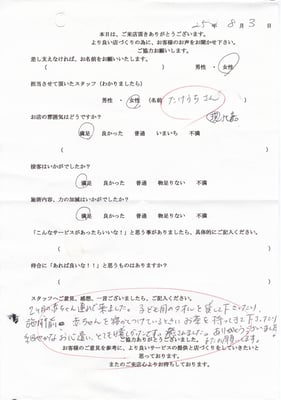 25年 8月 3日
本日は、ご来店頂きありがとうございます。
より良い店づくりの為に、お客様のお声をお聞かせ下さい。
ご協力お願いします。
差し支えなければ、お名前をお願いいたします。
( ) 男性 ・ 女性
担当させて頂いたスタッフ(わかりましたら)
男性 ・ 女性 (名前 たけうちさん )
お店の雰囲気はどうですか?
満足 良かった 普通 いまいち 不満
接客はいかがでしたか?
満足 良かった 普通 物足りない 不満
施術内容、力の加減はいかがでしたか?
満足 良かった 普通 物足りない 不満
「こんなサービスがあったらいいな!」と思う事がありましたら、具体的にご記入ください。
( )
待合に「あれば良いな!!」と思うものはありますか?
( )
スタッフへご意見、感想、一言ございましたら、ご記入ください。
2ヶ月の赤ちゃん連れで来ました。子ども用のタオルを貸して下さったり、
施術前、赤ちゃんを寝かしつけているときにお茶を持ってきて下さったり
細やかなお心遣い、とても嬉しかったです。癒されました。ありがとうございました。
ご協力ありがとうございました。
お客様のご意見を参考に、より良いサービスの提供と店づくりをしていきたいと
思っております。
またのご来店心よりお待ちしております。